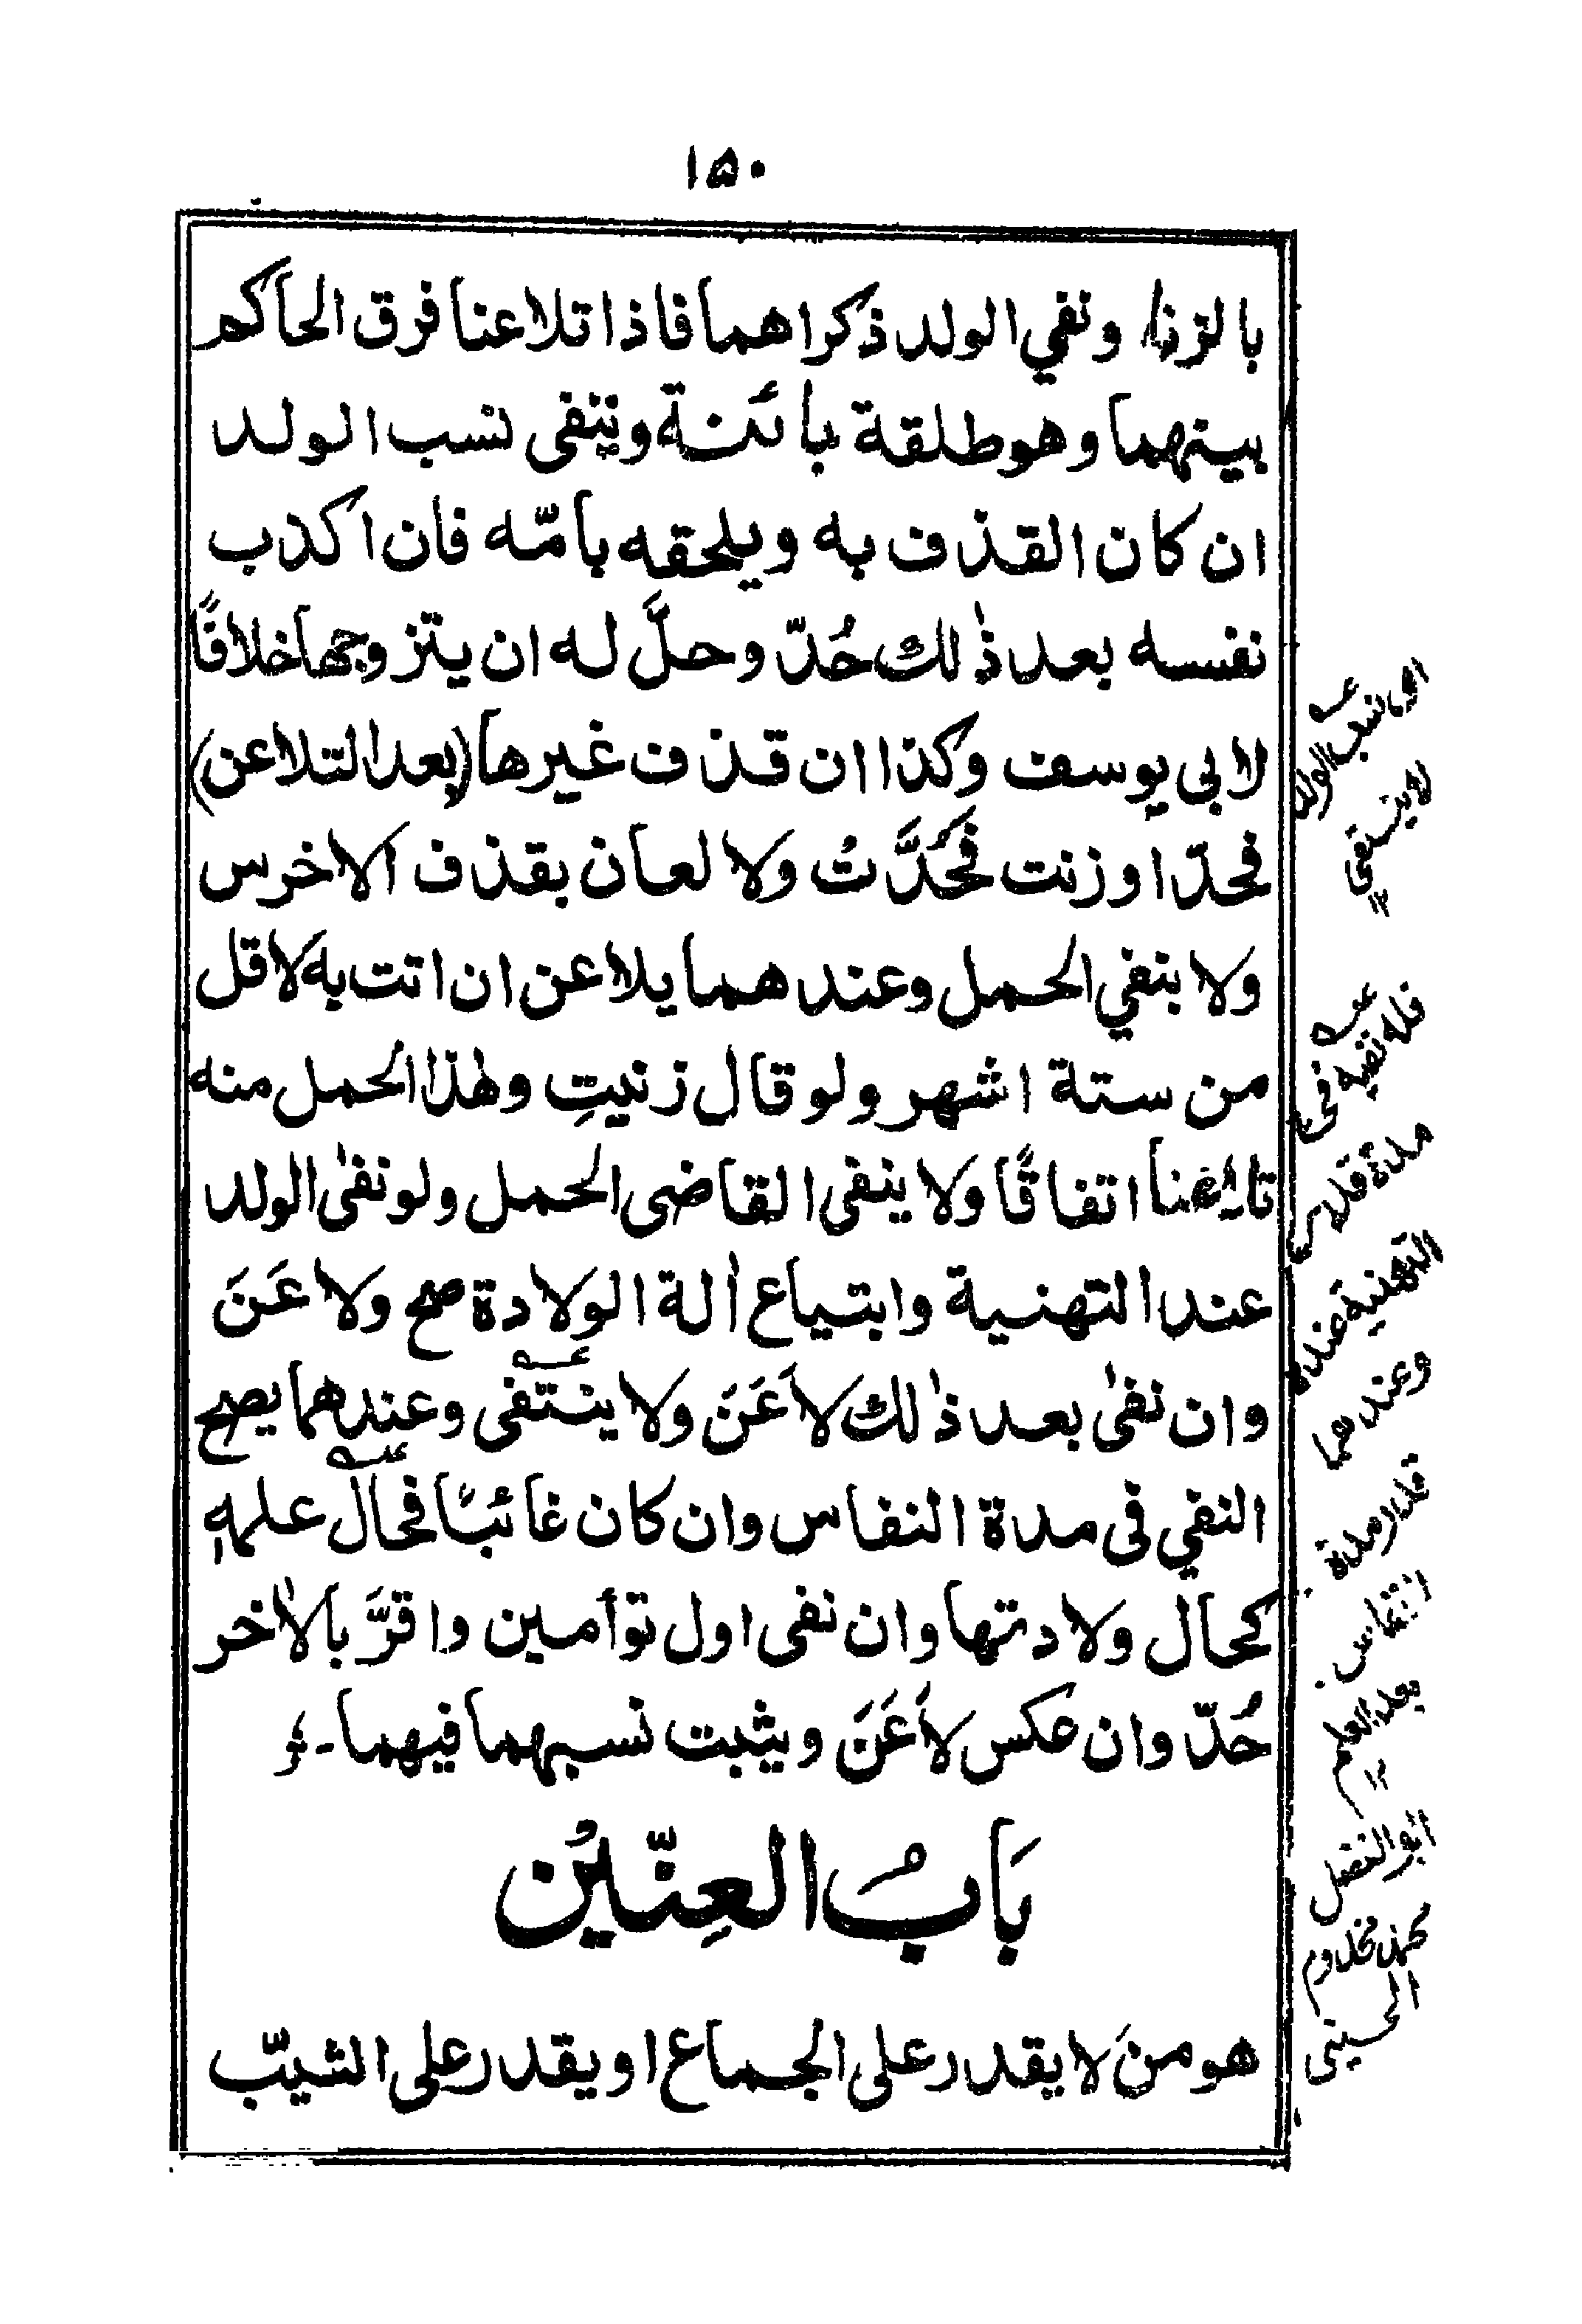 ١٥٠
بالزنا ونفي الولد ذكراهما فاذا تلاعنا فرق الحاكم
بينهما وهو طلقة بائنة وينفى نسب الولد
ان كان القذف به ويلحقه بامّه فان اكذب
نفسه بعد ذٰلك حُدّ وحلَّ له ان يتزوجها خلافًا
لابي يوسف وكذا ان قذف غيرها (بعد التلاعن)
فحدّ او زنت فَحُدَّتْ ولا لعان بقذف الاخرس
ولا بنفي الحمل وعندهما يلاعن ان اتت به لاقل
من ستة اشهر ولو قال زنيتِ وهٰذا الحمل منه
تلاعنا اتفاقًا ولا ينفى القاضى الحمل ولو نفىٰ الولد
عند التهنية وابتياع اٰلة الولادة صح ولاعَنَ
وان نفىٰ بعد ذٰلك لاَعَنَ ولا ينتفى وعندهما يصح
النفي فى مدة النفاس وان كان غائبًا فحال علمهٖ
كحال ولادتها وان نفى اول توأمين واقرَّ بالاٰخر
حُدّ وان عكس لاَعَنَ ويثبت نسبهما فيهما۔
بَابُ العِنّيْن
هو من لا يقدر على الجماع او يقدر على الثيّب
اى نسب الولد
لا ينتفي
عـه فله نفيه فى
مدة قدر
التهنية عنده
وعندهما
قدر مدة
النفاس
بعد العلم
ابو الفضل
محمد مخدوم
الحسينى